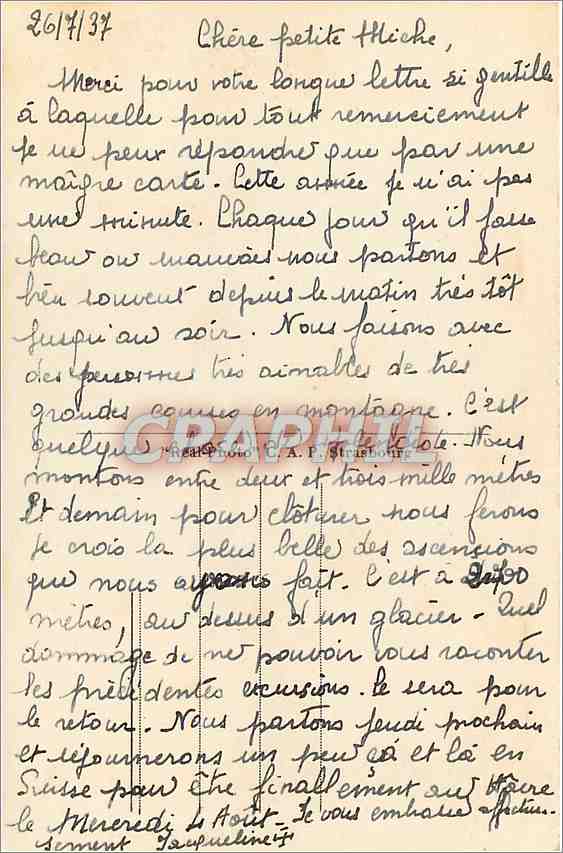 26/7/37
Chère petite Miche,
Merci pour votre longue lettre si gentille
à laquelle pour tout remerciement
je ne peux répondre que par une
maigre carte. Cette année je n'ai pas
une minute. Chaque jour qu'il fasse
beau ou mauvais nous partons et
bien souvent depuis le matin très tôt
jusqu'au soir. Nous faisons avec
des personnes très aimables de très
grandes courses en montagne. C'est
quelque chose de splendide. Nous
CPAPHIL
"Real-Photo" C. A. P. Strasbourg
montons entre deux et trois mille mètres
Et demain pour clôturer nous ferons
je crois la plus belle des ascencions
que nous ayons fait. C'est à
mètres, au dessus d'un glacier. Quel
dommage de ne pouvoir vous raconter
les précédentes excursions. Ce sera pour
le retour. Nous partons jeudi prochain
et séjournerons un peu çà et là en
Suisse pour être finallement au Hâvre
le Mercredi 4 Août. Je vous embrasse affectueu-
sement Jacqueline